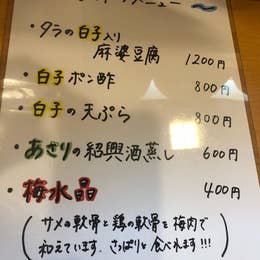 メニュー
・タラの白子入り
麻婆豆腐 1200円
・白子ポン酢 800円
・白子の天ぷら 800円
・あさりの紹興酒蒸し 600円
・梅水晶 400円
(サメの軟骨と鶏の軟骨を梅肉で
和えています。さっぱりと食べれます!!!)